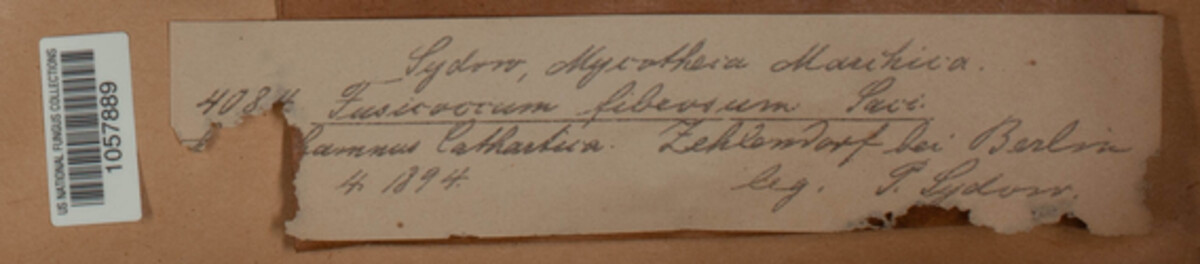 US NATIONAL FUNGUS COLLECTIONS
1057889
Sydow, Mycotheca Marchica.
4084 Fusicoccum fibrosum Sacc.
hamnus Cathartica. Zehlendorf bei Berlin
4. 1894. leg. P. Sydow.